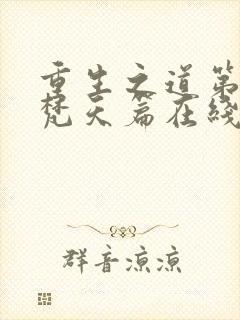 重生之道第
梵天篇在线
群音凉凉